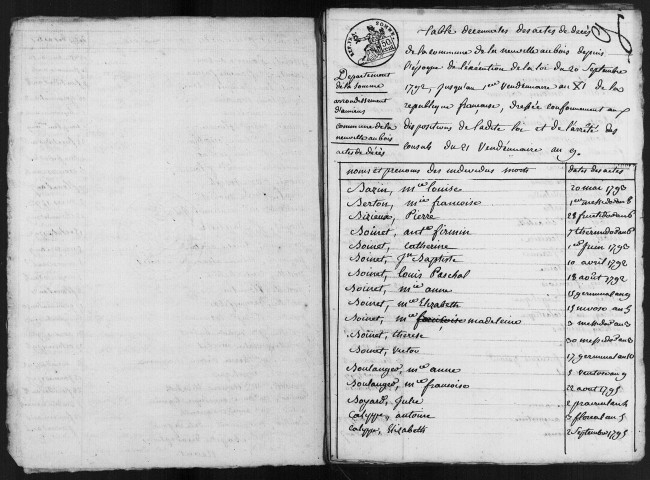 Table décennales des actes de décès
de la commune de la neuville au bois depuis
l'époque de l'exécution de la loi du 20 Septembre
1792, jusqu'au 1er Vendemiaire an XI de la
republique francaise, dressée conformement aux
dispositions de ladite loi et de l'arrêté des
consuls du 21 Vendémiaire an 9.
Departement
de la Somme
arrondissement
d'amiens
commune de la
neuville au bois
actes de décès
noms et prenoms des individus morts dates des actes
Bazin, mie louise 20 mai 1793
Berton, mie francoise 1er messidor an 8
Bizieux, Pierre 28 fructidor an 6
Boinet, antne firmin 7 thermidor an 6
Boinet, catherine 1er juin 1793
Boinet, Jn Baptiste 10 avril 1792
Boinet, louis Paschal 18 août 1792
Boinet, mie anne 15 germinal an 9
Boinet, mie Elizabeth 15 nivose an 5
Boinet, mie francoise madeleine 3 messidor an 3
Boinet, therese 30 messidor an 3
Boinet, victor 17 germinal an 10
Boulanger, mie anne 5 ventose an 9
Boulanger, mie francoise 22 août 1793
Boyard, Julie 2 prairial an 4
Calyppe, antoine 3 floreal an 5
Calyppe, Elizabeth 2 Septembre 1793